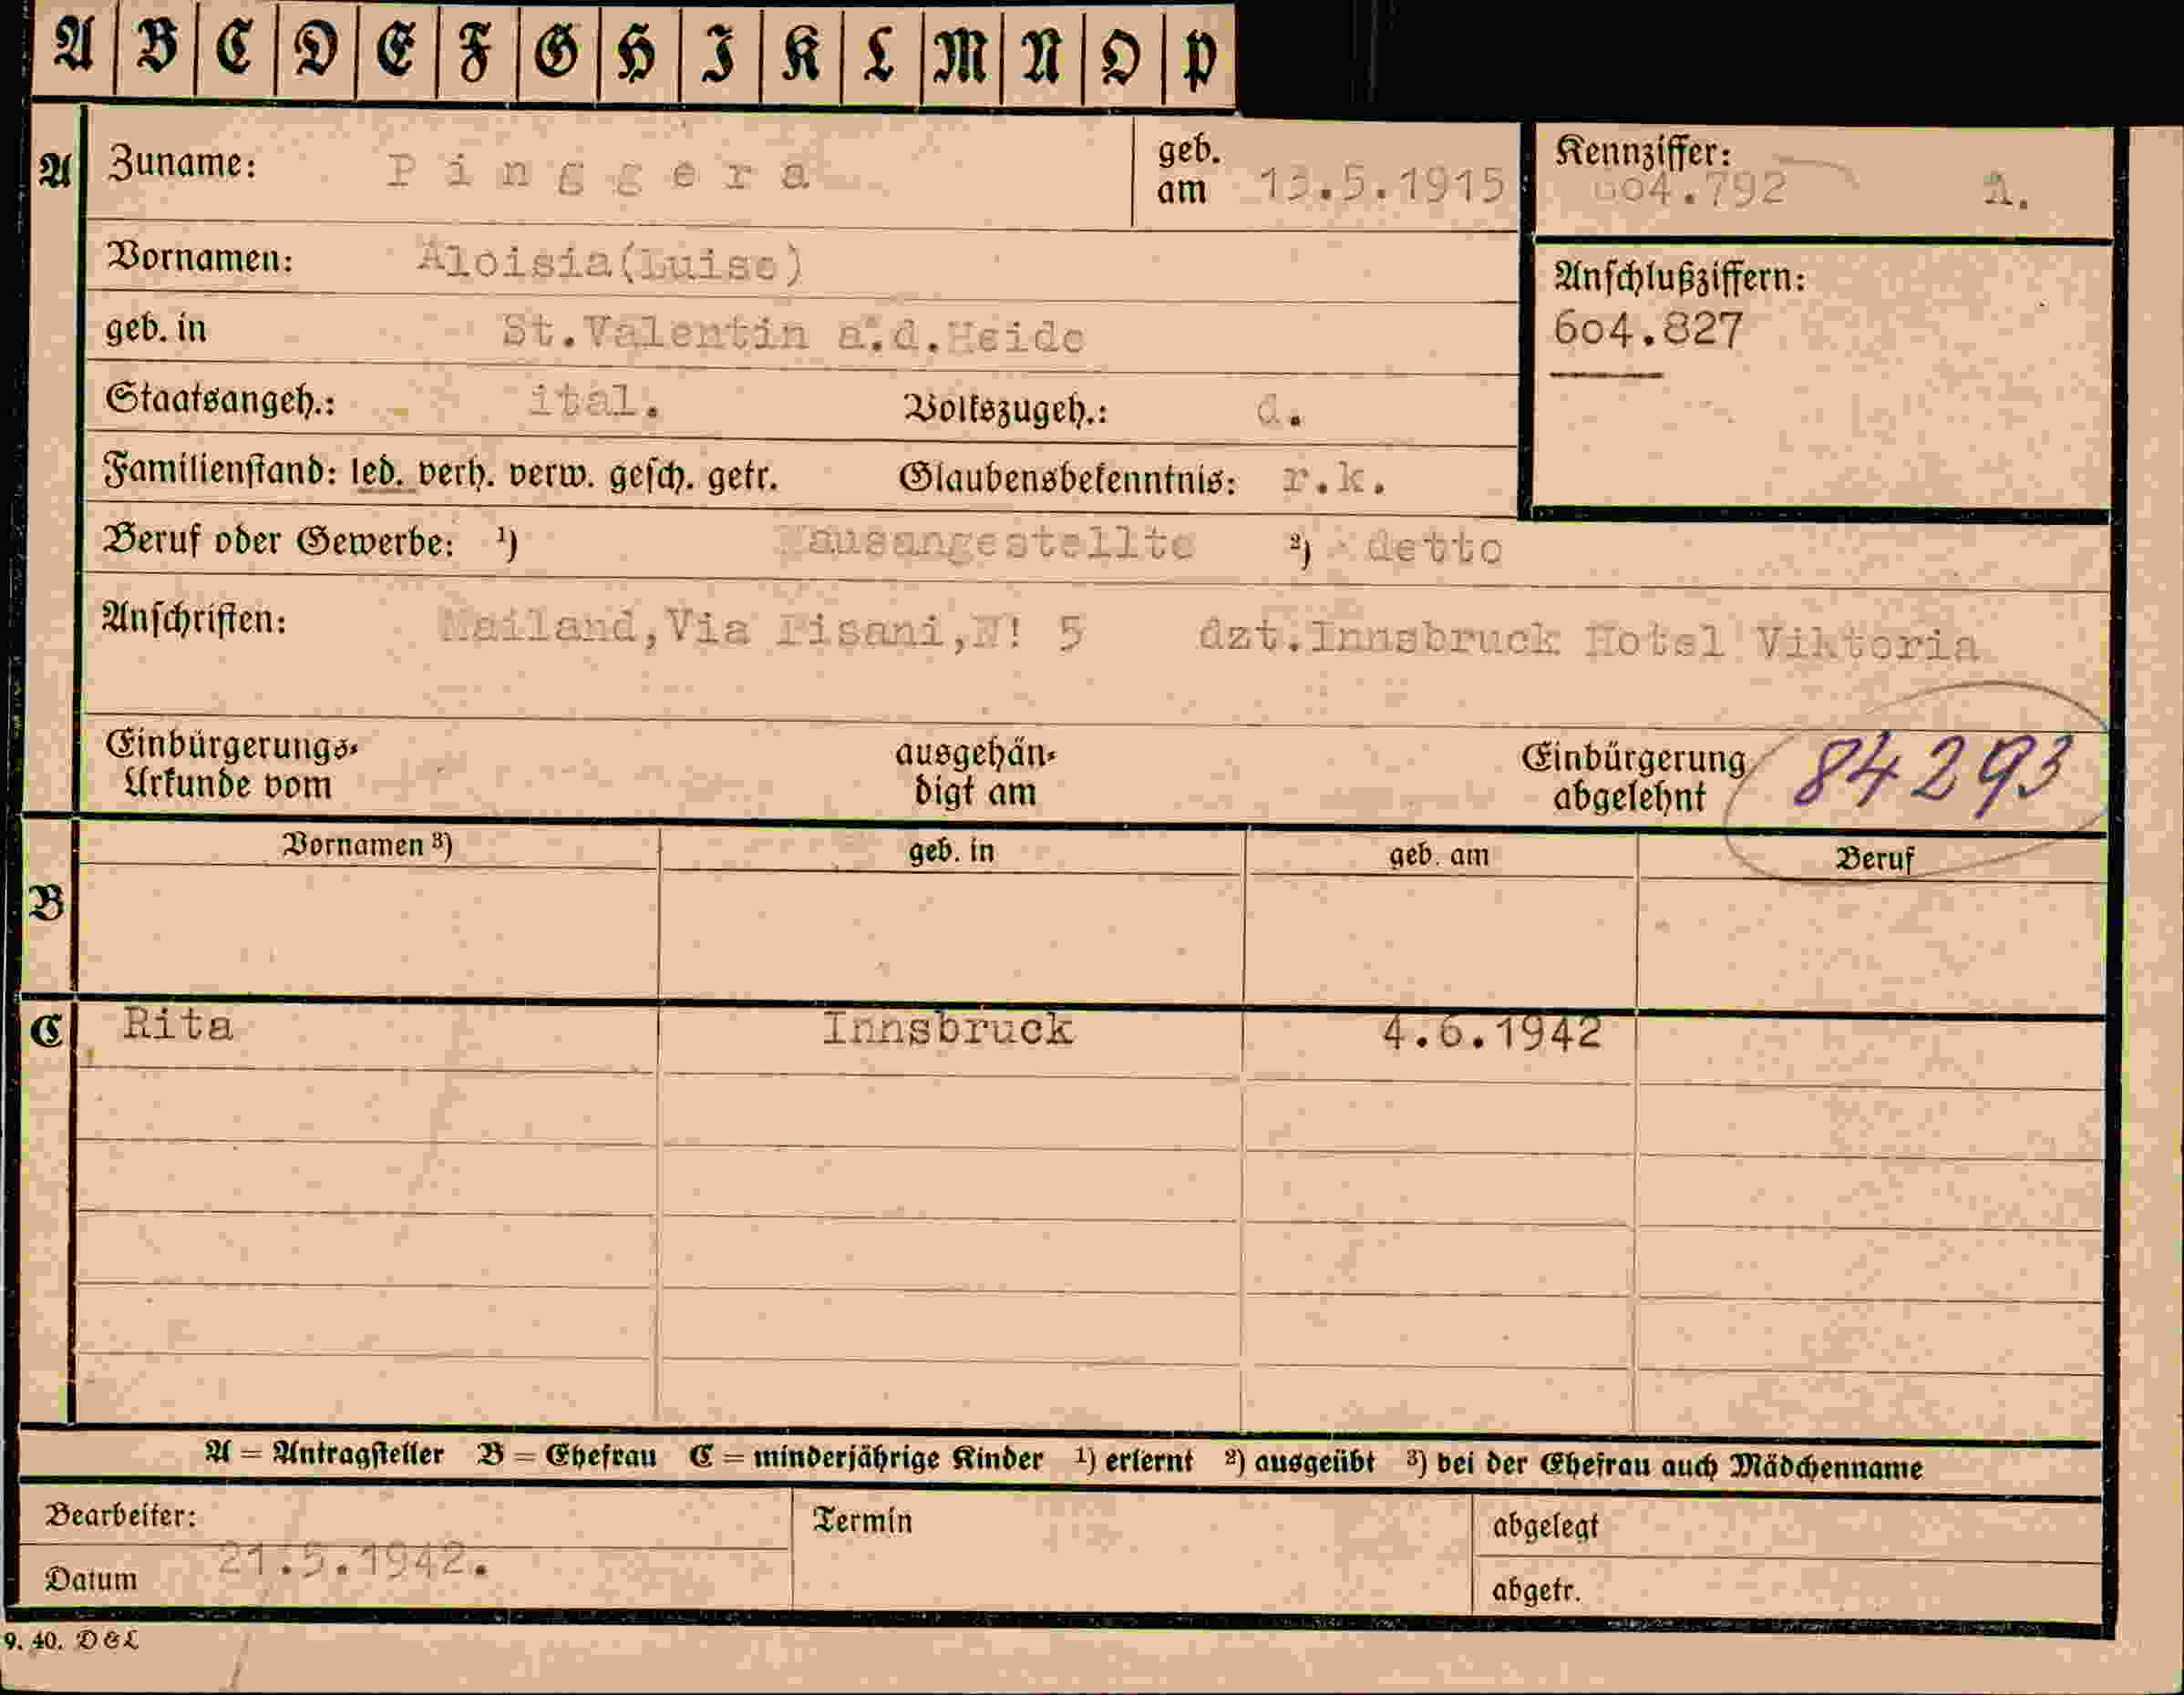 A B C D E F G H I K L M N O P
A Zuname: Pinggera geb. am 13.5.1915 Kennziffer: 604.792 A.
Vornamen: Aloisia(Luise) Anschlußziffern:
geb. in St.Valentin a.d.Heide 604.827
Staatsangeh.: ital. Volkszugeh.: d.
Familienstand: led. verh. verw. gesch. getr. Glaubensbekenntnis: r.k.
Beruf oder Gewerbe: ¹) Hausangestellte ²) detto
Anschriften: Mailand,Via Pisani,N! 5 dzt.Innsbruck Hotel Viktoria
Einbürgerungs- ausgehän- Einbürgerung 84293
Urkunde vom digt am abgelehnt
Vornamen ³) geb. in geb. am Beruf
B
C Rita Innsbruck 4.6.1942
A = Antragsteller B = Ehefrau C = minderjährige Kinder ¹) erlernt ²) ausgeübt ³) bei der Ehefrau auch Mädchenname
Bearbeiter: Termin abgelegt
Datum 21.5.1942. abgetr.
9. 40. D&L